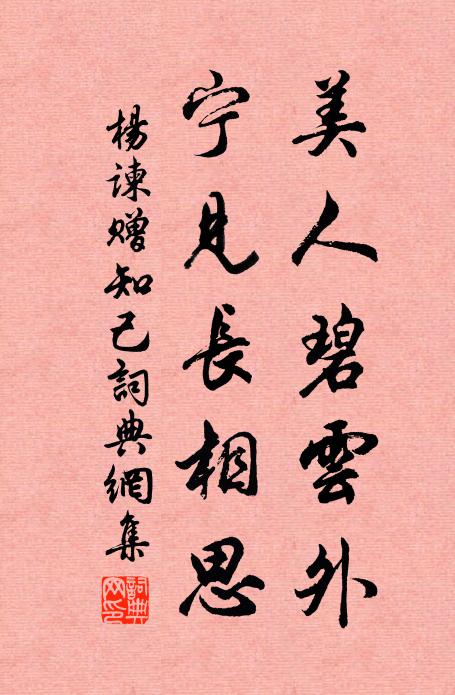 美人碧雲外
宁見長相思
楊諫贈知己詞典網集
詞典網印